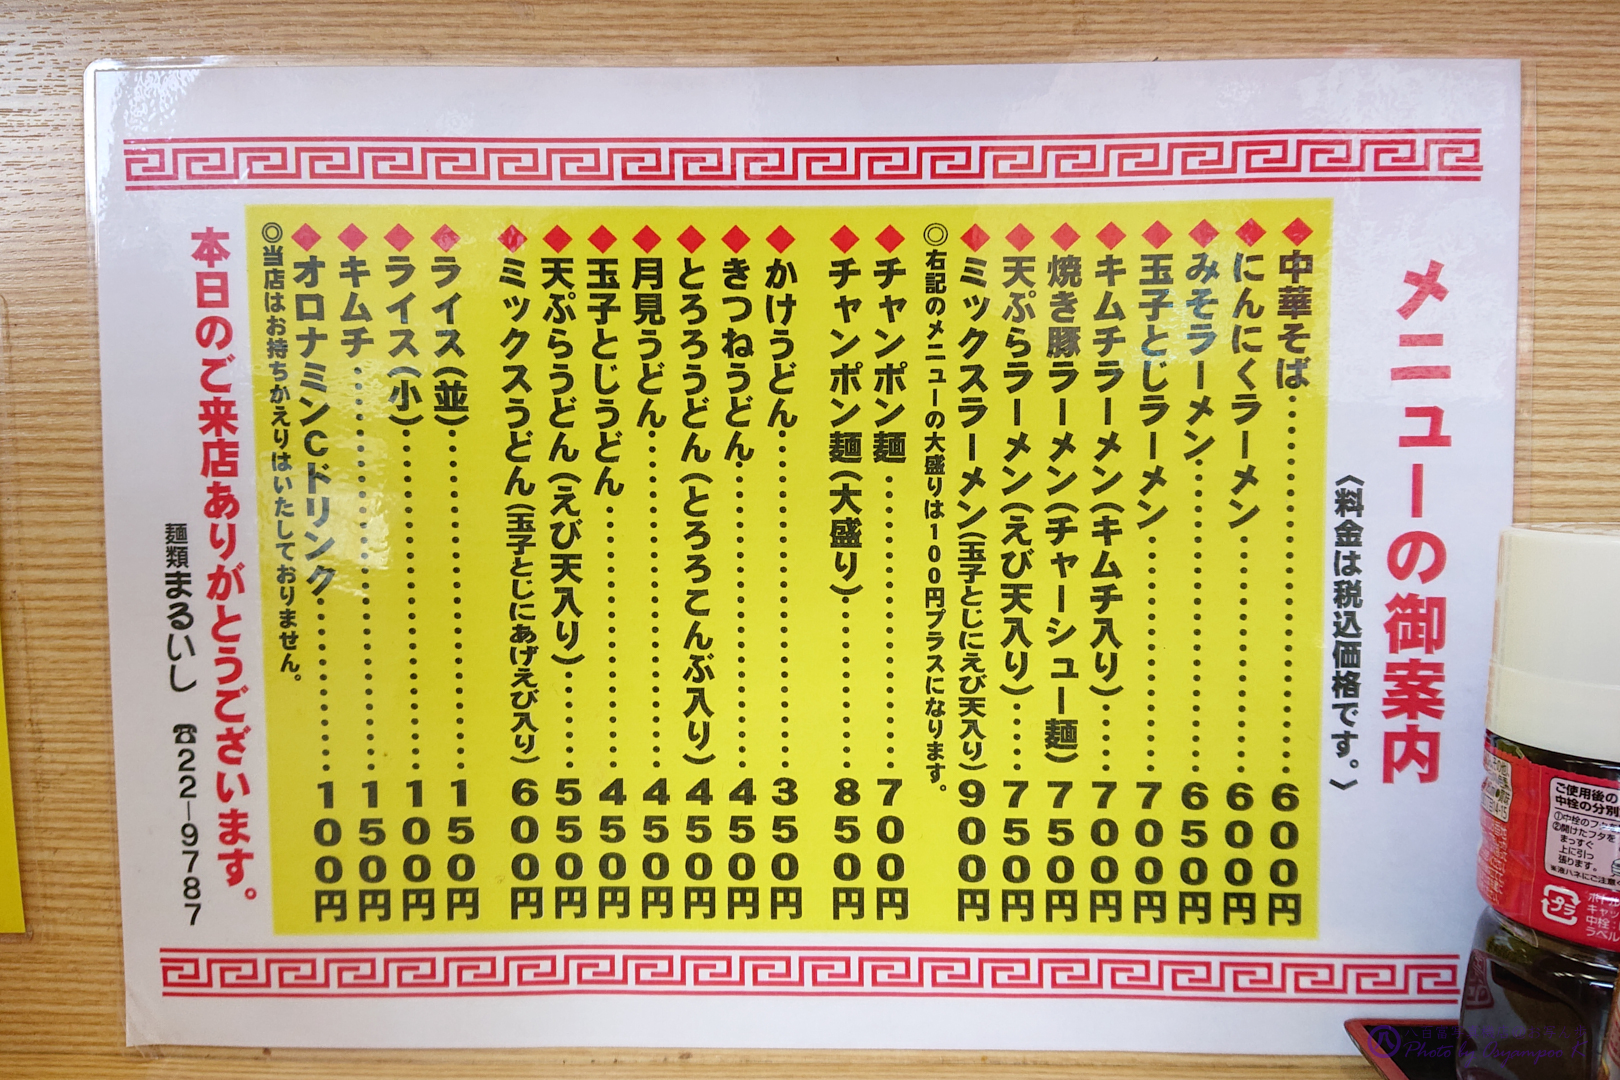 メニューの御案内
〈料金は税込価格です。〉
◆中華そば・・・・・・・・・・・・・・600円
◆にんにくラーメン・・・・・・・・・600円
◆みそラーメン・・・・・・・・・・・・650円
◆玉子とじラーメン・・・・・・・・・700円
◆キムチラーメン(キムチ入り)・・・・700円
◆焼き豚ラーメン(チャーシュー麺)750円
◆天ぷらラーメン(えび天入り)・・・・750円
◆ミックスラーメン(玉子とじにえび天入り)900円
◎右記のメニューの大盛りは100円プラスになります。
◆チャンポン麺・・・・・・・・・・・・700円
◆チャンポン麺(大盛り)・・・・・・・850円
◆かけうどん・・・・・・・・・・・・・350円
◆きつねうどん・・・・・・・・・・・・450円
◆とろろうどん(とろろこんぶ入り)450円
◆月見うどん・・・・・・・・・・・・・450円
◆玉子とじうどん・・・・・・・・・・・450円
◆天ぷらうどん(えび天入り)・・・・・550円
◆ミックスうどん(玉子とじにあげえび入り)600円
◆ライス(並)・・・・・・・・・・・・・150円
◆ライス(小)・・・・・・・・・・・・・100円
◆キムチ・・・・・・・・・・・・・・・150円
◆オロナミンCドリンク・・・・・・・100円
◎当店はお持ちかえりはいたしておりません。
本日のご来店ありがとうございます。
麺類 まるいし ☎22-9787
ご使用後の
中栓の分別
①中栓のフタを
②開けたフタを
まっすぐ
上に引っ
張ります。
プラ